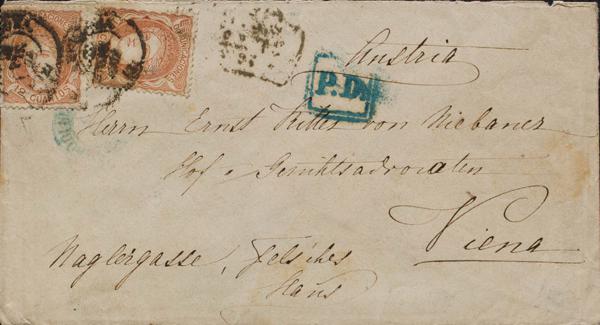 Austria
P.D.
12 CUARTOS
Herrn Ernst Ritter von Niebauer
Hof e Gerichtsadvocaten
Viena
Naglergasse, Fels'ches
Haus